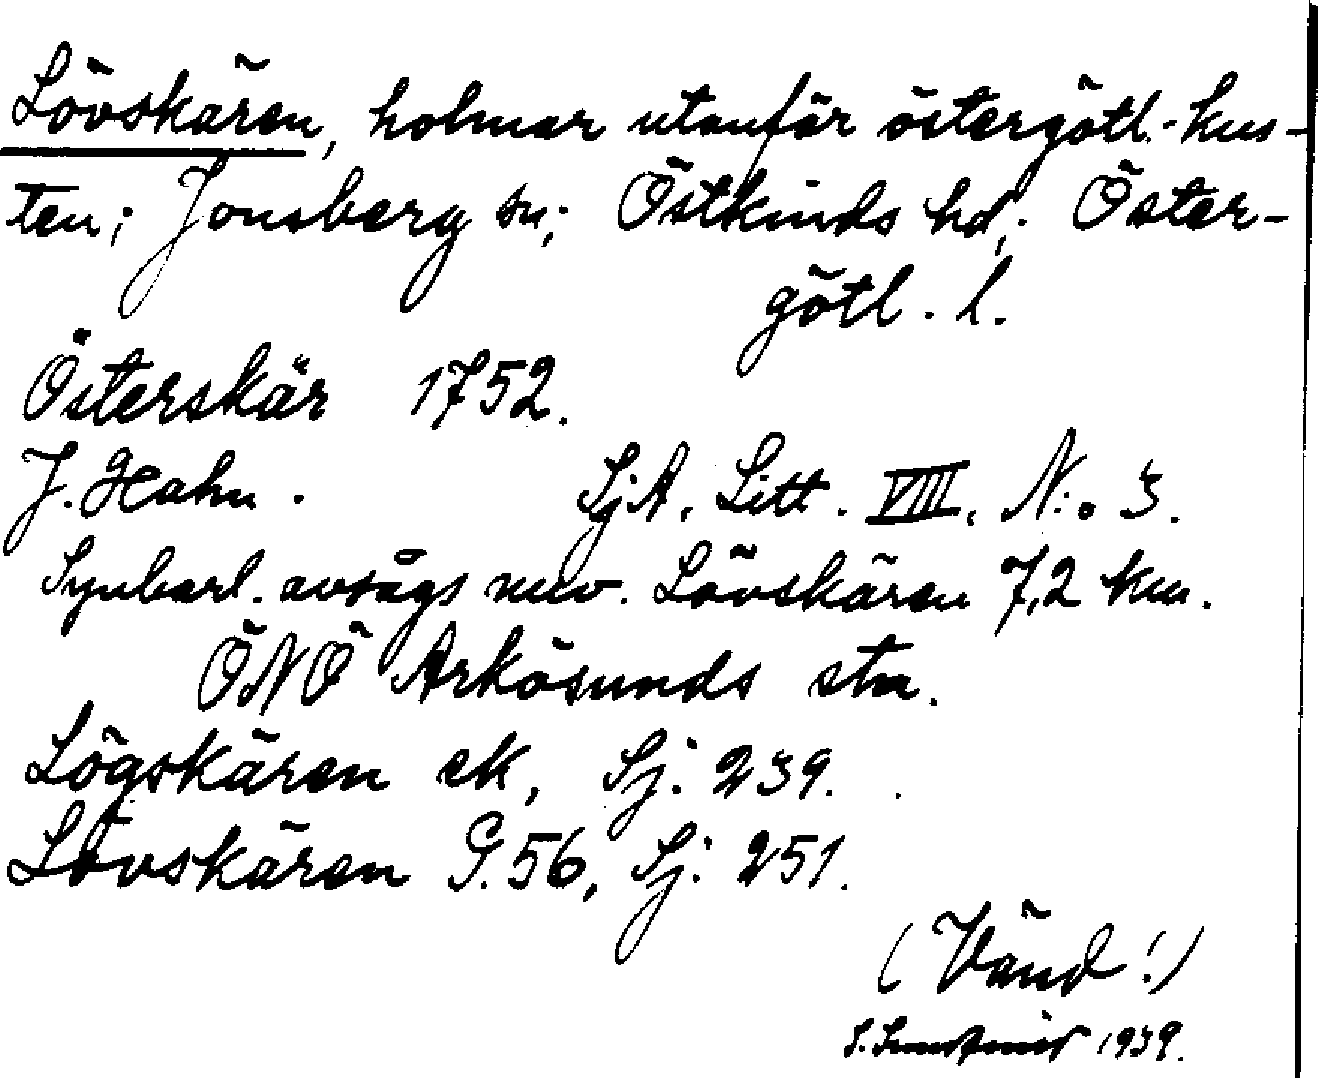 Lövskären, holmar utanför östergötl. kus-
ten; Jonsberg sn; Östkinds hd; Öster-
götl. l.
Österskär 1752.
J. Hahn. SjA. Litt. VIII. N:o 3.
Synbarl. avsågs nuv. Lövskären 7,2 km.
ÖNÖ Arkösunds stn.
Lögskären ek, Sj: 239.
Lövskären G. 56, Sj: 251.
(Vänd!)
S. 1939.